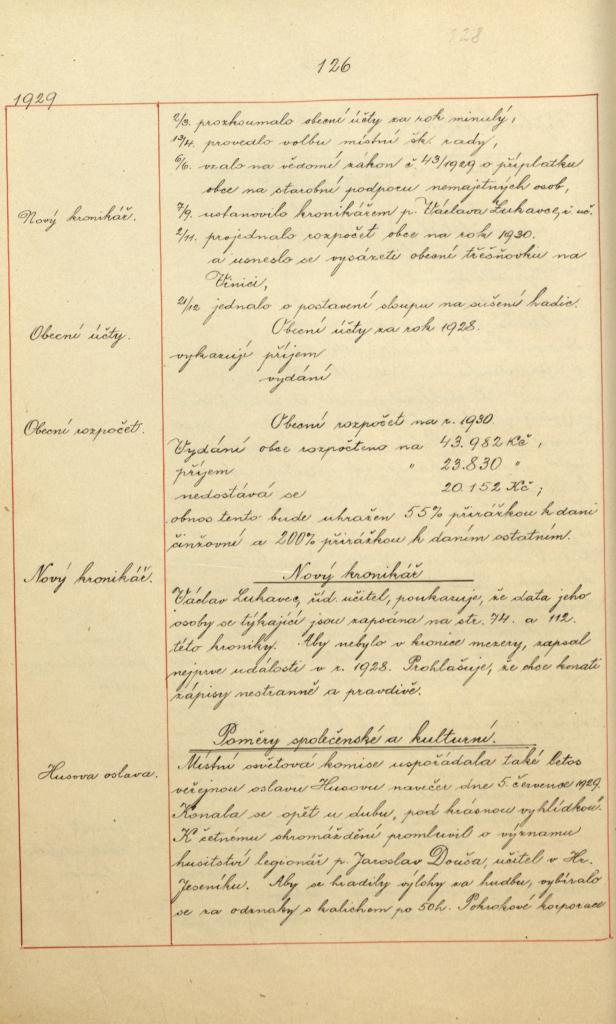 128
126
1929
2/3. prozkoumalo obecní účty za rok minulý,
13/4. provedlo volbu místní šk. rady,
6/6. vzalo na vědomí zákon č. 43/1929 o příplatku
obce na starobní podporu nemajetných osob,
Nový kronikář.
7/9. ustanovilo kronikářem p. Václava Lukavce, ř. uč.
2/11. projednalo rozpočet obce na rok 1930.
a usneslo se vysázeti obecní třešňovku na
Vinici,
21/12 jednalo o postavení sloupu na sušení hadic.
Obecní účty.
Obecní účty za rok 1928.
vykazují příjem
vydání
Obecní rozpočet.
Obecní rozpočet na r. 1930.
Vydání obce rozpočteno na 43.982 Kč,
příjem " 23.830 "
nedostává se 20.152 Kč;
obnos tento bude uhražen 55% přirážkou k dani
činžovní a 200% přirážkou k daním ostatním.
Nový kronikář.
Nový kronikář
Václav Lukavec, říd. učitel, poukazuje, že data jeho
osoby se týkající jsou zapsána na str. 74. a 112.
této kroniky. Aby nebylo v kronice mezery, zapsal
nejprve události v r. 1928. Prohlašuje, že chce konati
zápisy nestranně a pravdivě.
Poměry společenské a kulturní.
Husova oslava.
Místní osvětová komise uspořádala také letos
veřejnou oslavu Husovu navečer dne 5. července 1929.
Konala se opět u dubu, pod krásnou vyhlídkou.
K četnému shromáždění promluvil o významu
husitství legionář p. Jaroslav Douša, učitel v Hr.
Jeseníku. Aby se hradily výlohy za hudbu, vybíralo
se za odznaky s kalichem po 50h. Pokrokové korporace